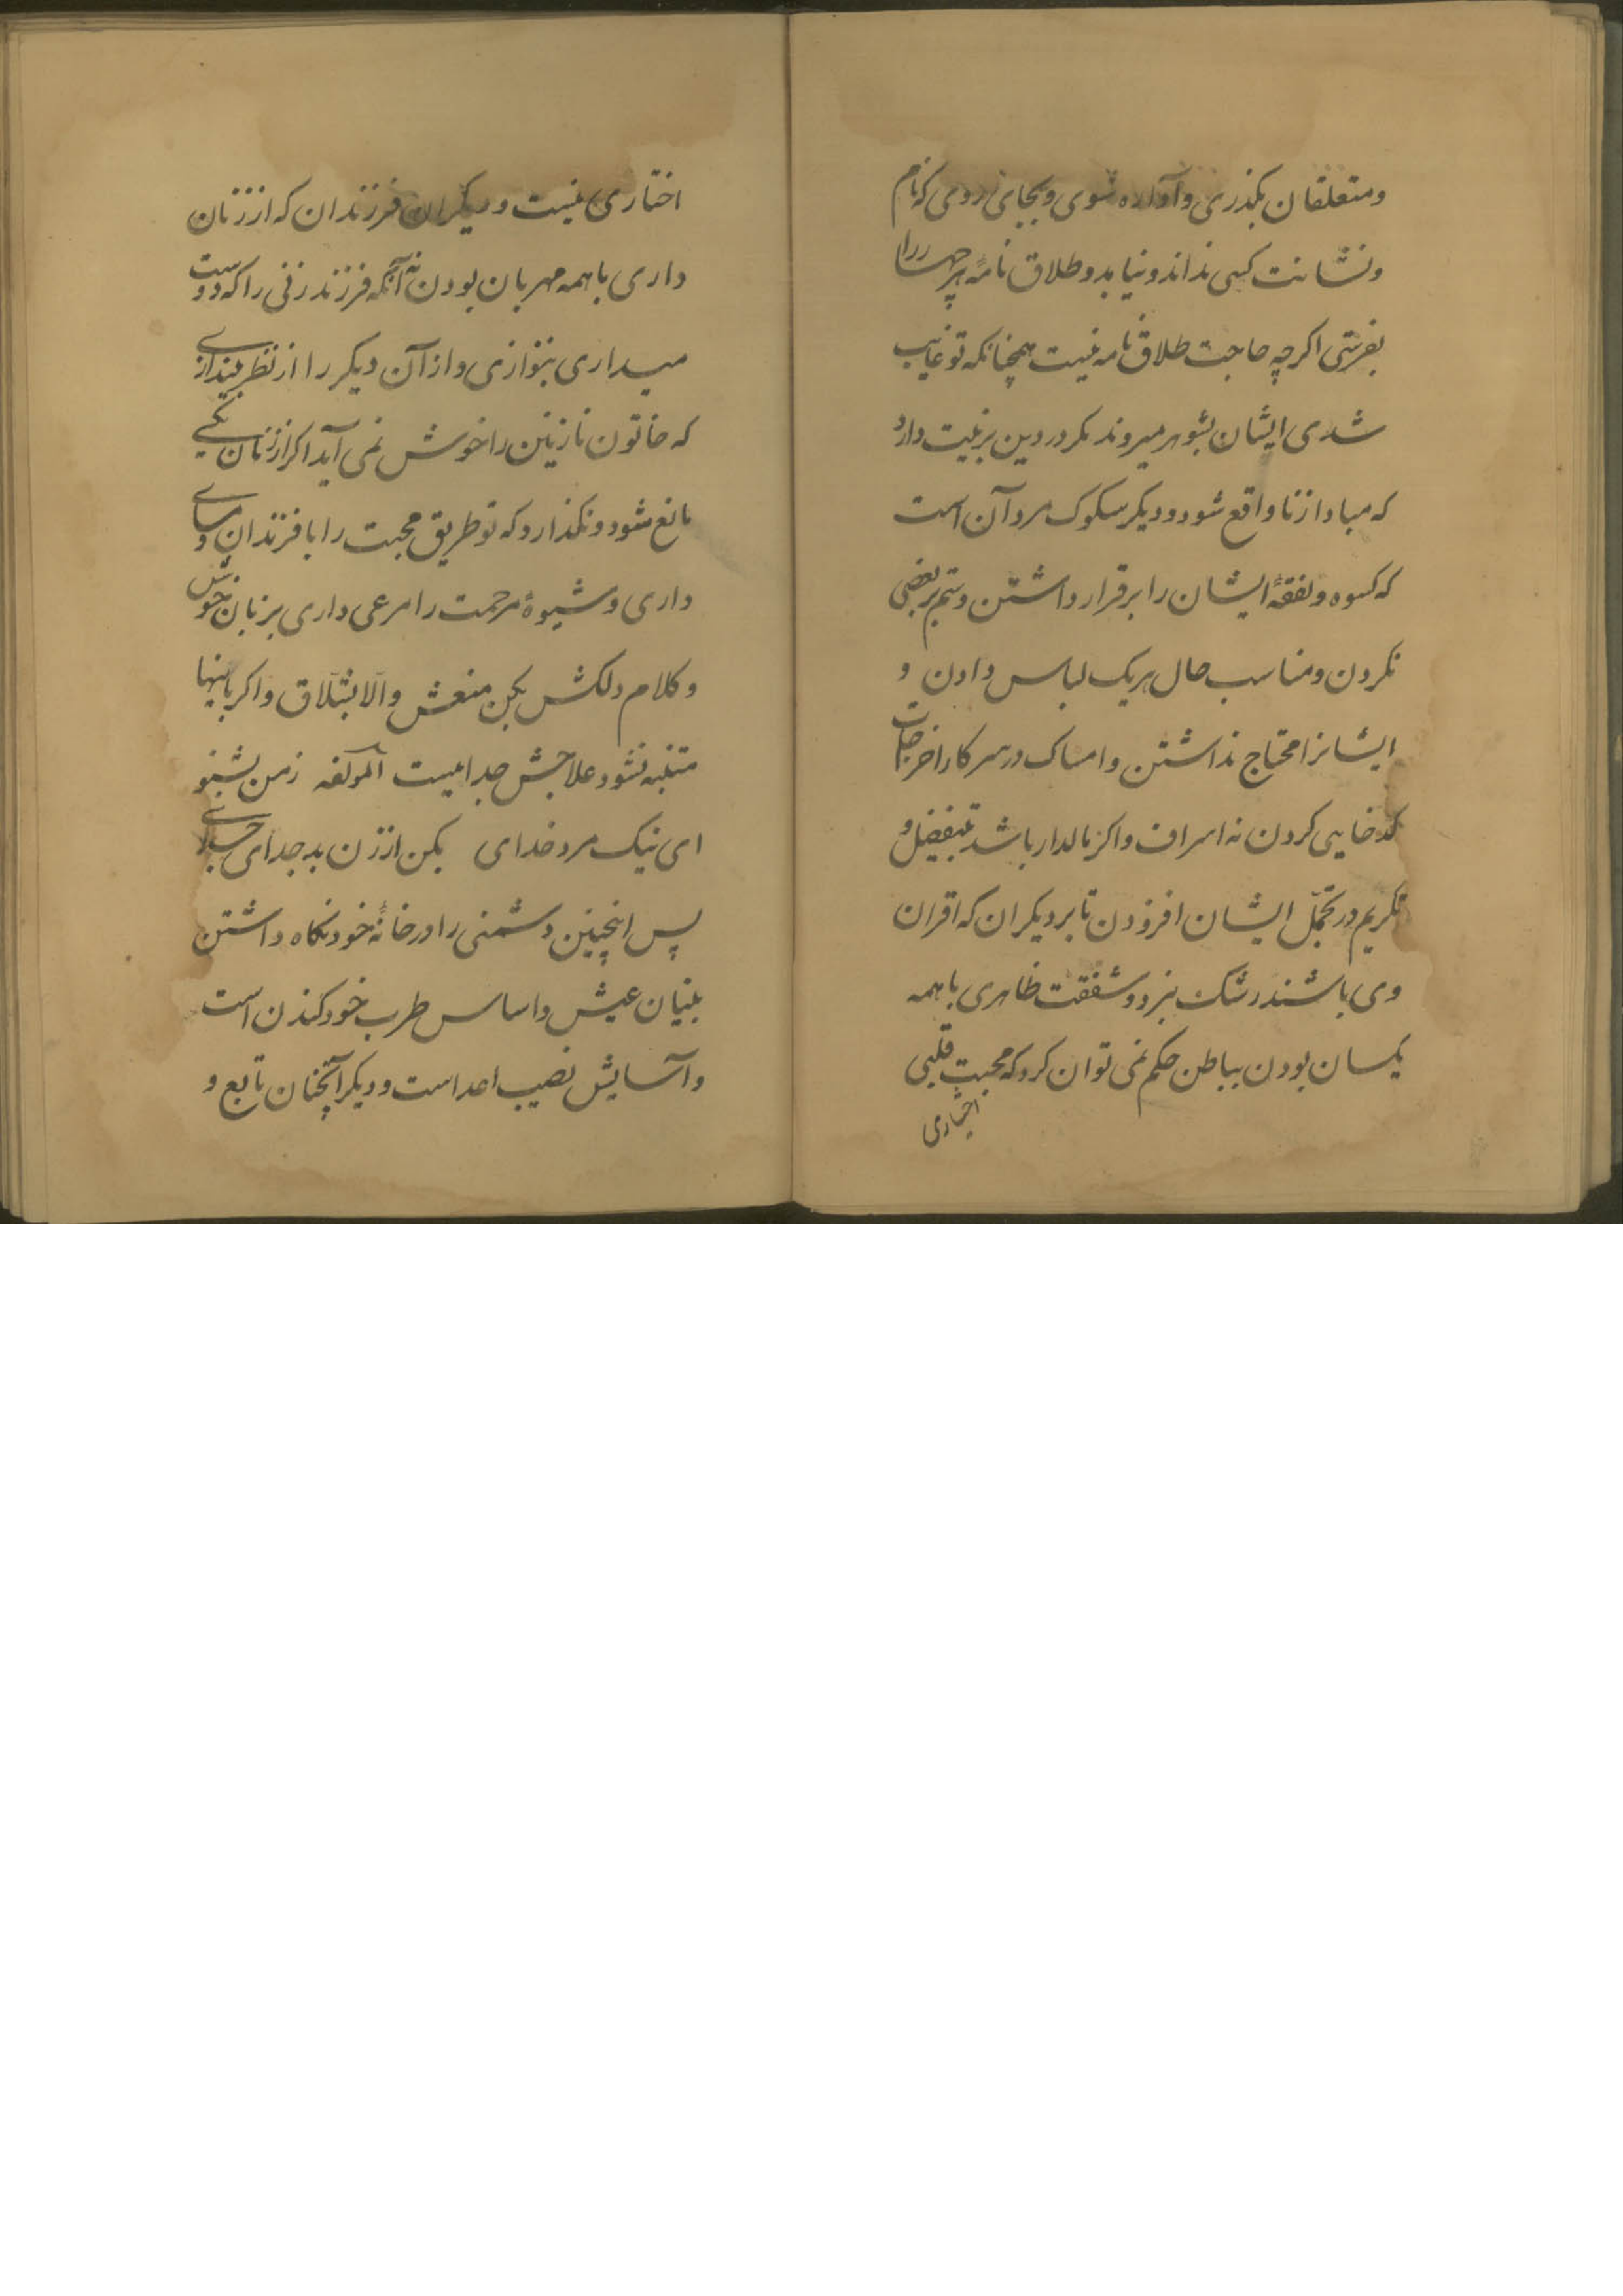 ومتعلقان بکذری و آواره شوی و بجای روی که نام
و نشانت کسی نداند و نیابد و طلاق نامهٔ هر چهار را
بفرستی اکرچه حاجت طلاق نامه نیست همچنانکه تو غایب
شدی ایشان بشوهر میروند مکر در دین بزنیت دارد
که مبادا زنا واقع شود و دیکر سکوک مرد آن است
که کسوه و نفقهٔ ایشان را برقرار داشتن و ستم بر بعضی
نکردن و مناسب حال هر یک لباس دادن و
ایشانرا محتاج نداشتن و امساک در سر کار اخراجات
کدخایی کردن نه اسراف و اکر مالدار باشد بتفضیل و
تکریم در تجمّل ایشان افزودن تا بر دیکران که اقران
وی باشند رشک نبرد و شفقت ظاهری با همه
یکسان بودن بباطن حکم نمی توان کرد که محبت قلبی
اختیاری
اختیاری نیست و دیکر ان فرزندان که از زنان
داری با همه مهربان بودن نه آنکه فرزند زنی را که دوست
میداری بنوازی و از آن دیکر را از نظر بیندازی
که خاتون نازنین را خوش نمی آید اکر از زنان یکی
مانع شود و نکذارد که تو طریق محبت را با فرزندان مساوی
داری و شیوهٔ مرحمت را مرعی داری بزبان خوش
و کلام دلکش بکن منعش و الا بشلاق و اکر باینها
متنبه نشود علاجش جداییست المولفه ز من بشنو
ای نیک مرد خدای بکن از زن بد جدای
پس اینچنین دشمنی را در خانهٔ خود نکاه داشتن
بنیان عیش و اساس طرب خود کندن است
و آسایش نصیب اعداست و دیکر آنچنان تابع و